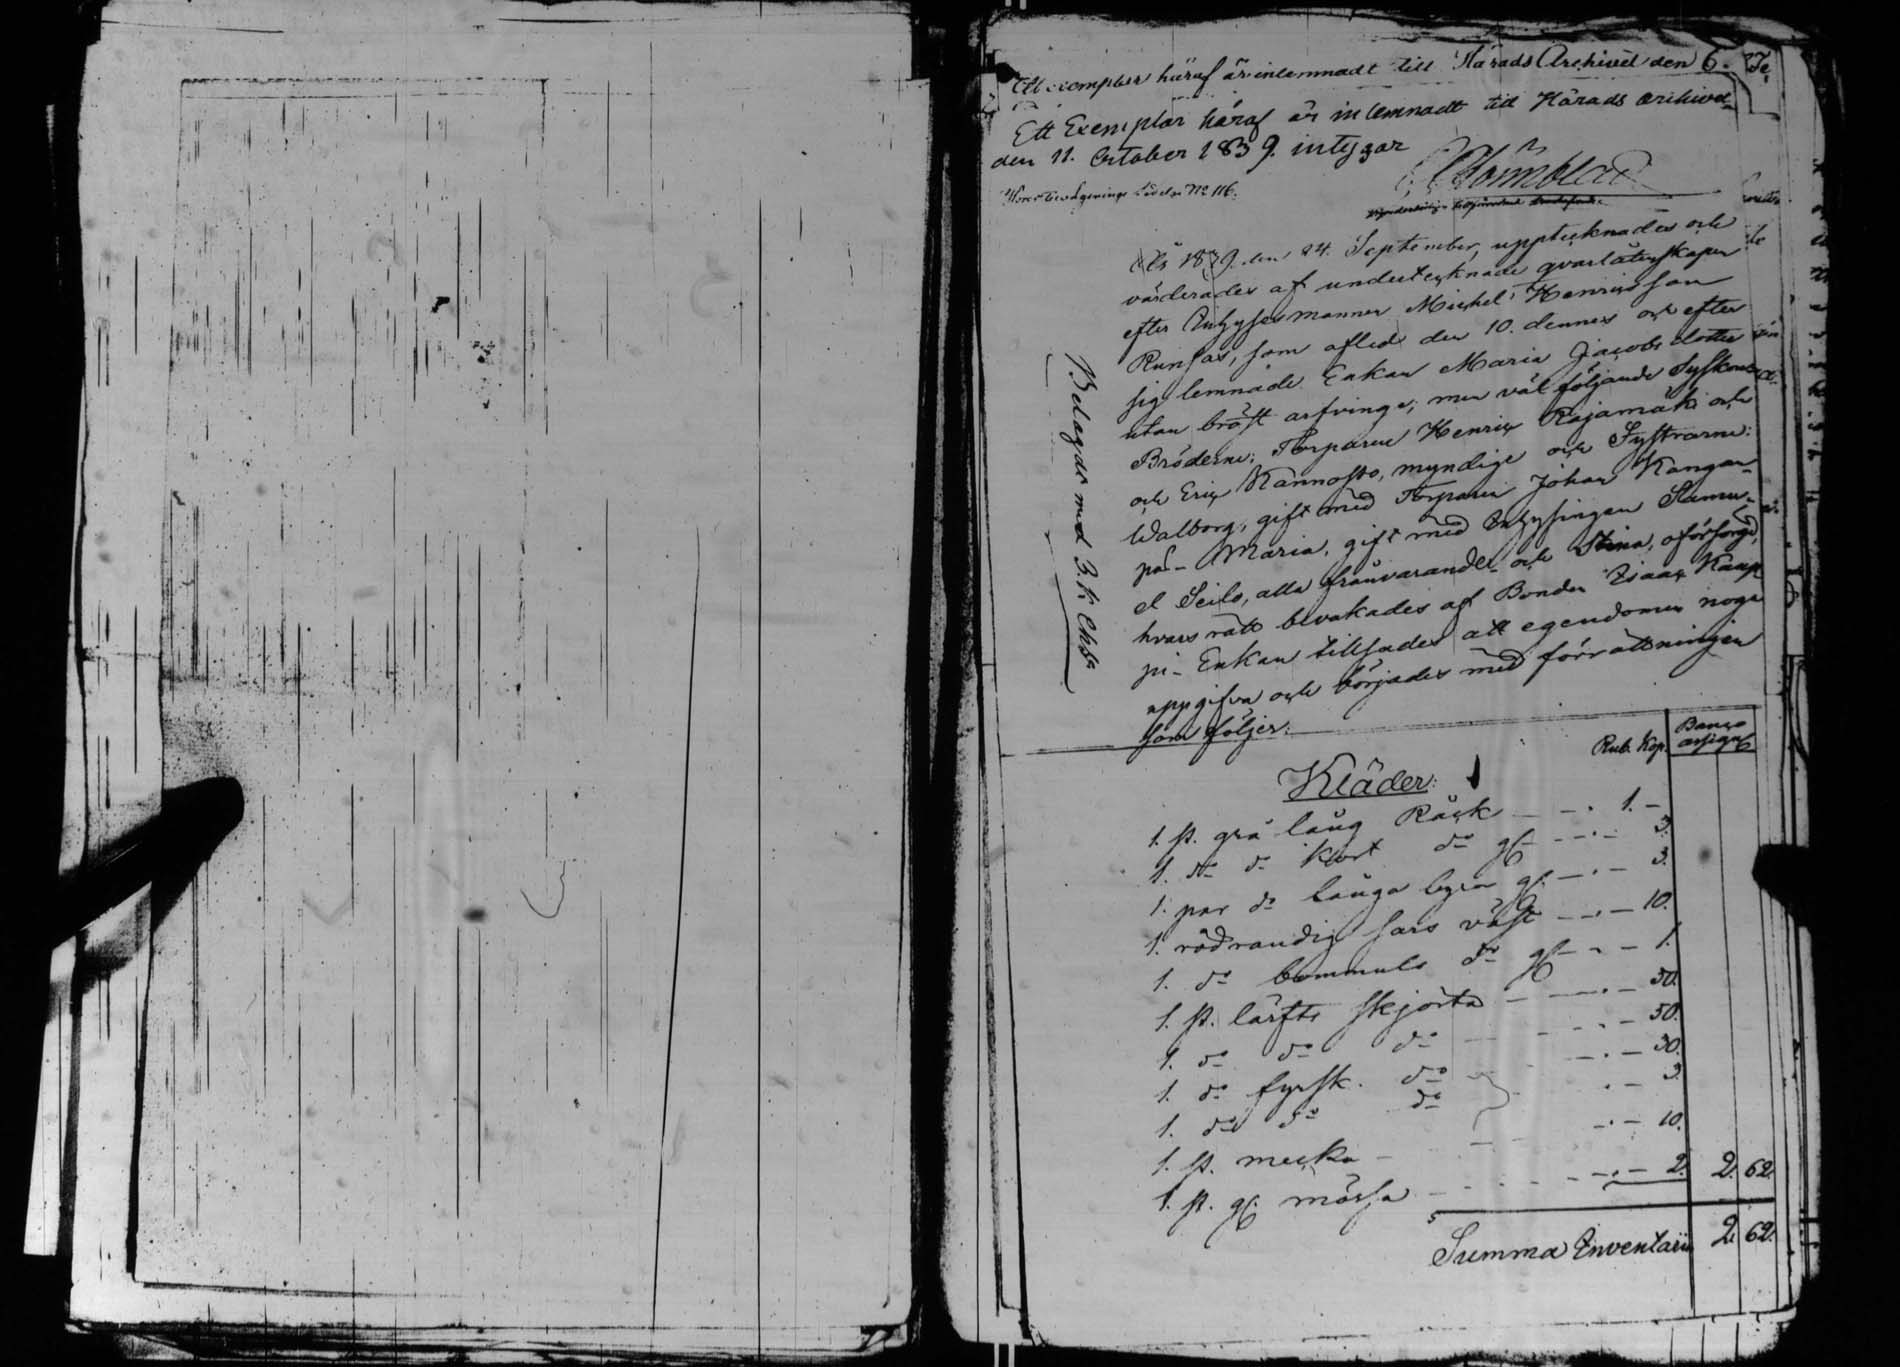 Ett exemplar häraf är inlemnadt till Härads Archivet den 6.
Ett Exemplar häraf är inlemnadt till Härads Archivet
den 11. October 1839. intygar
No 116.
År 1839. den 24. September, upptecknades och
värderades af undertecknade qvarlåtenskapen
efter Inhyses mannen Michel Henricsson
Runsas, som afled den 10. dennes och efter
sig lemnade Enkan Maria Jacobs dotter
utan bröst arfvinge; men väl följande Syskon:
Bröderne: Torparne Henric Rajamäki och
och Eric Kannosto, myndige och Systrarne:
Walborg, gift med Torparen Johan Kangan-
pä- Maria, gift med Inhysingen Samu-
el Seilo, alla frånvarande- och Stina, oförsörgd,
hvars rätt bevakades af Bonden Isaac Kaap
pi- Enkan tillsades att egendomen noga
uppgifva och börjades med förrättningen
som följer:
Belagdt med 3. k. Ch:S:
Rub. Kop. Banco assign
Kläder:
1. st. grå lång Råck 1. -
1. do do kort do gl 3.
1. par do långa byxor gl. 3.
1. röd randig sars väst 10.
1. do bommuls do gl 1.
1. st. lärfts skjorta 50.
1. do do do 50.
1. do fyrsk. do 30.
1. do do do 3.
1. st. mecko 10.
1. st. gl. mössa 2. 2. 62.
Summa Inventarii 2. 62.